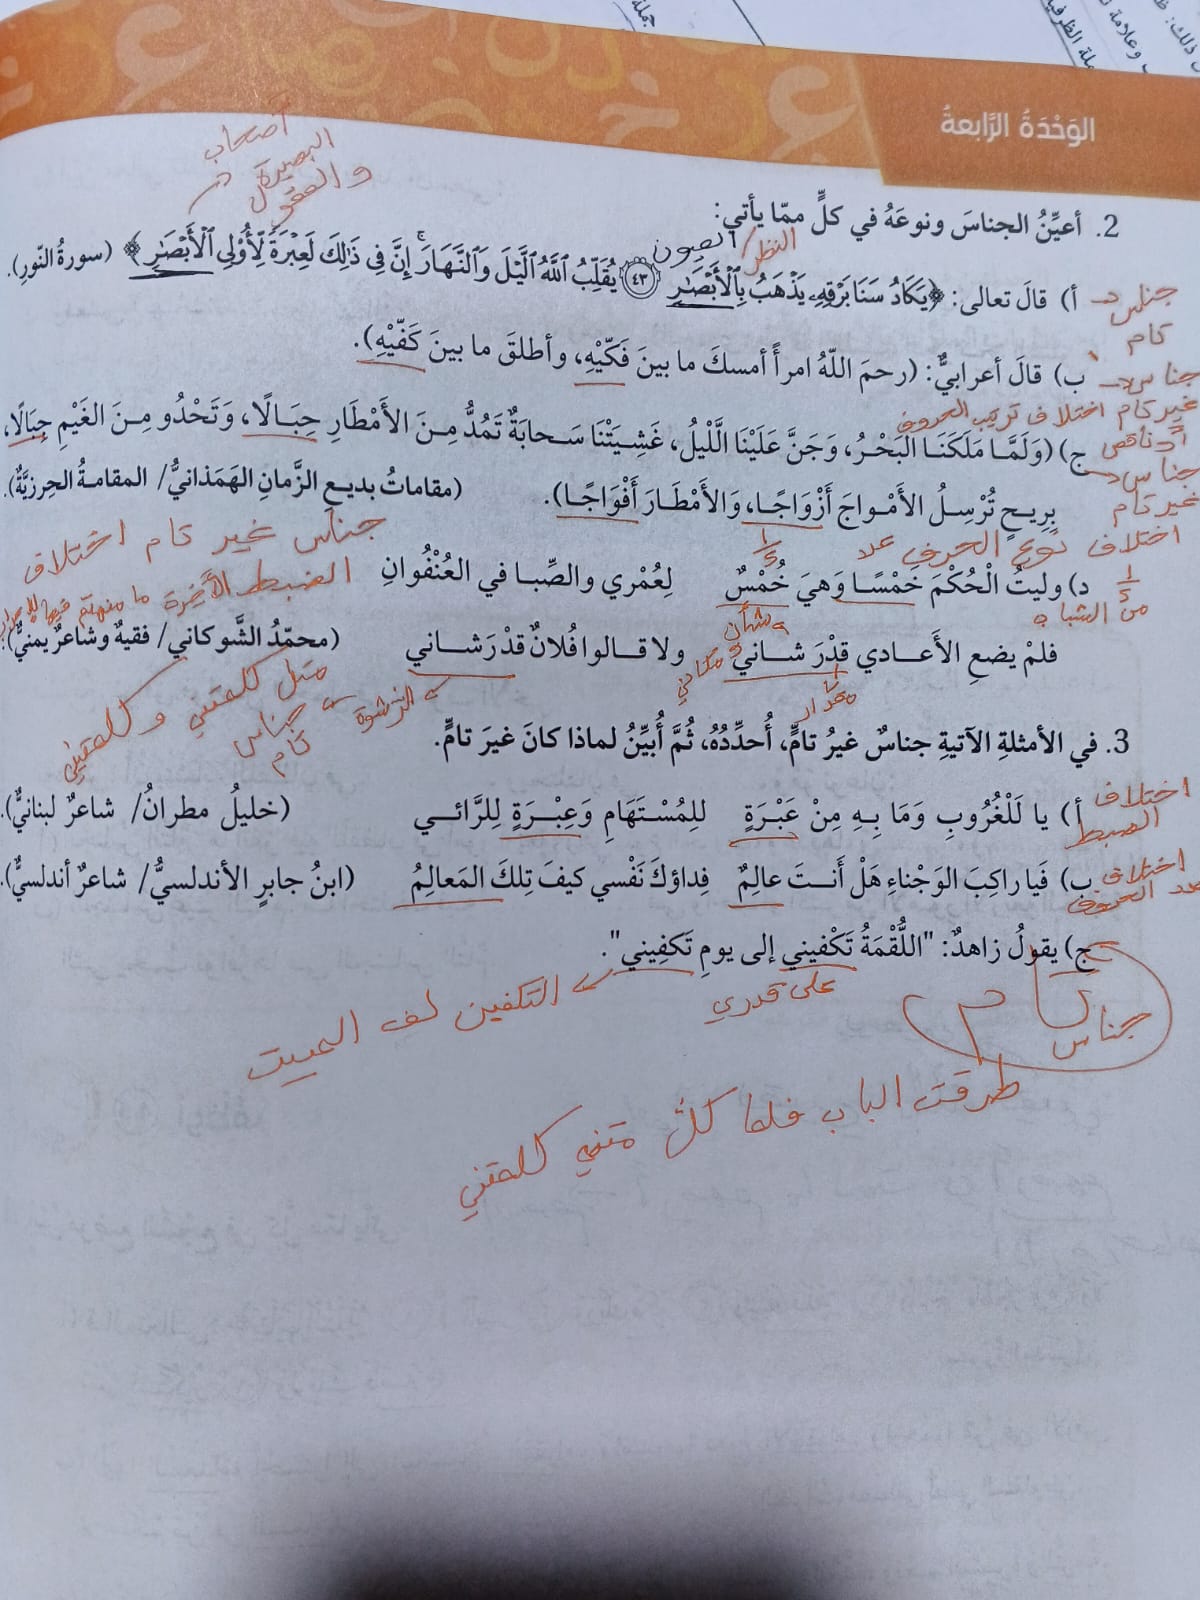 جملة
ذلك: ظ
وعلامة
جملة الظرفية
الوَحْدَةُ الرَّابِعَةُ
أصحاب
البصيرة
والعقول
2. أعيِّنُ الجناسَ ونوعَهُ في كلٍّ ممّا يأتي:
النظر/ العيون
أ) قالَ تعالى: ﴿يَكَادُ سَنَا بَرْقِهِۦ يَذْهَبُ بِٱلْأَبْصَٰرِ ٤٣ يُقَلِّبُ ٱللَّهُ ٱلَّيْلَ وَٱلنَّهَارَ ۚ إِنَّ فِى ذَٰلِكَ لَعِبْرَةً لِّأُو۟لِى ٱلْأَبْصَٰرِ﴾ (سورةُ النّورِ).
جناس تام
ب) قالَ أعرابيٌّ: (رحمَ اللّهُ امرأً أمسكَ ما بينَ فَكّيْهِ، وأطلقَ ما بينَ كَفّيْهِ).
جناس غير تام اختلاف ترتيب الحروف
أو ناقص
ج) (وَلَمَّا مَلَكَنَا الْبَحْرُ، وَجَنَّ عَلَيْنَا اللَّيْلُ، غَشِيَتْنَا سَحابَةٌ تَمُدُّ مِنَ الأَمْطَارِ حِبَالًا، وَتَحْدُو مِنَ الغَيْمِ جِبَالًا،
بِرِيحٍ تُرْسِلُ الأَمْواجَ أَزْوَاجًا، وَالأَمْطَارَ أَفْوَاجًا). (مقاماتُ بديعِ الزَّمانِ الهَمَذانيُّ/ المقامةُ الحِرزيَّةُ).
جناس غير تام
اختلاف نوع الحرف
جناس غير تام اختلاف
الضبط
د) وليتُ الْحُكْمَ خَمْسًا وَهيَ خُمْسٌ لِعُمْري والصِّبا في العُنْفُوانِ
1/5
1/5
من الشباب
شأن
و مكاني
فلمْ يضعِ الأَعادي قدْرَ شاني ولا قالوا فُلانٌ قدْ رَشاني (محمّدُ الشَّوكاني/ فقيهٌ وشاعرٌ يمنيٌّ).
مقدار
الرشوة
جناس تام
مثل كلمتني وكلمتني
3. في الأمثلةِ الآتيةِ جناسٌ غيرُ تامٍّ، أُحدِّدُهُ، ثُمَّ أُبيِّنُ لماذا كانَ غيرَ تامٍّ.
أ) يا لَلْغُرُوبِ وَمَا بِهِ مِنْ عَبْرَةٍ لِلمُسْتَهَامِ وَعِبْرَةٍ لِلرَّائي (خليلُ مطرانُ/ شاعرٌ لبنانيٌّ).
اختلاف الضبط
ب) فَيا راكِبَ الوَجْناءِ هَلْ أَنتَ عالِمٌ فِداؤكَ نَفْسي كيفَ تِلكَ المَعالِمُ (ابنُ جابرٍ الأندلسيُّ/ شاعرٌ أندلسيٌّ).
اختلاف عدد الحروف
ج) يقولُ زاهدٌ: "اللُّقْمَةُ تَكْفيني إلى يومِ تَكفيني".
على قدري
التكفين لف الميت
جناس تام
طرقت الباب فلما كلَّ متني كلمتني